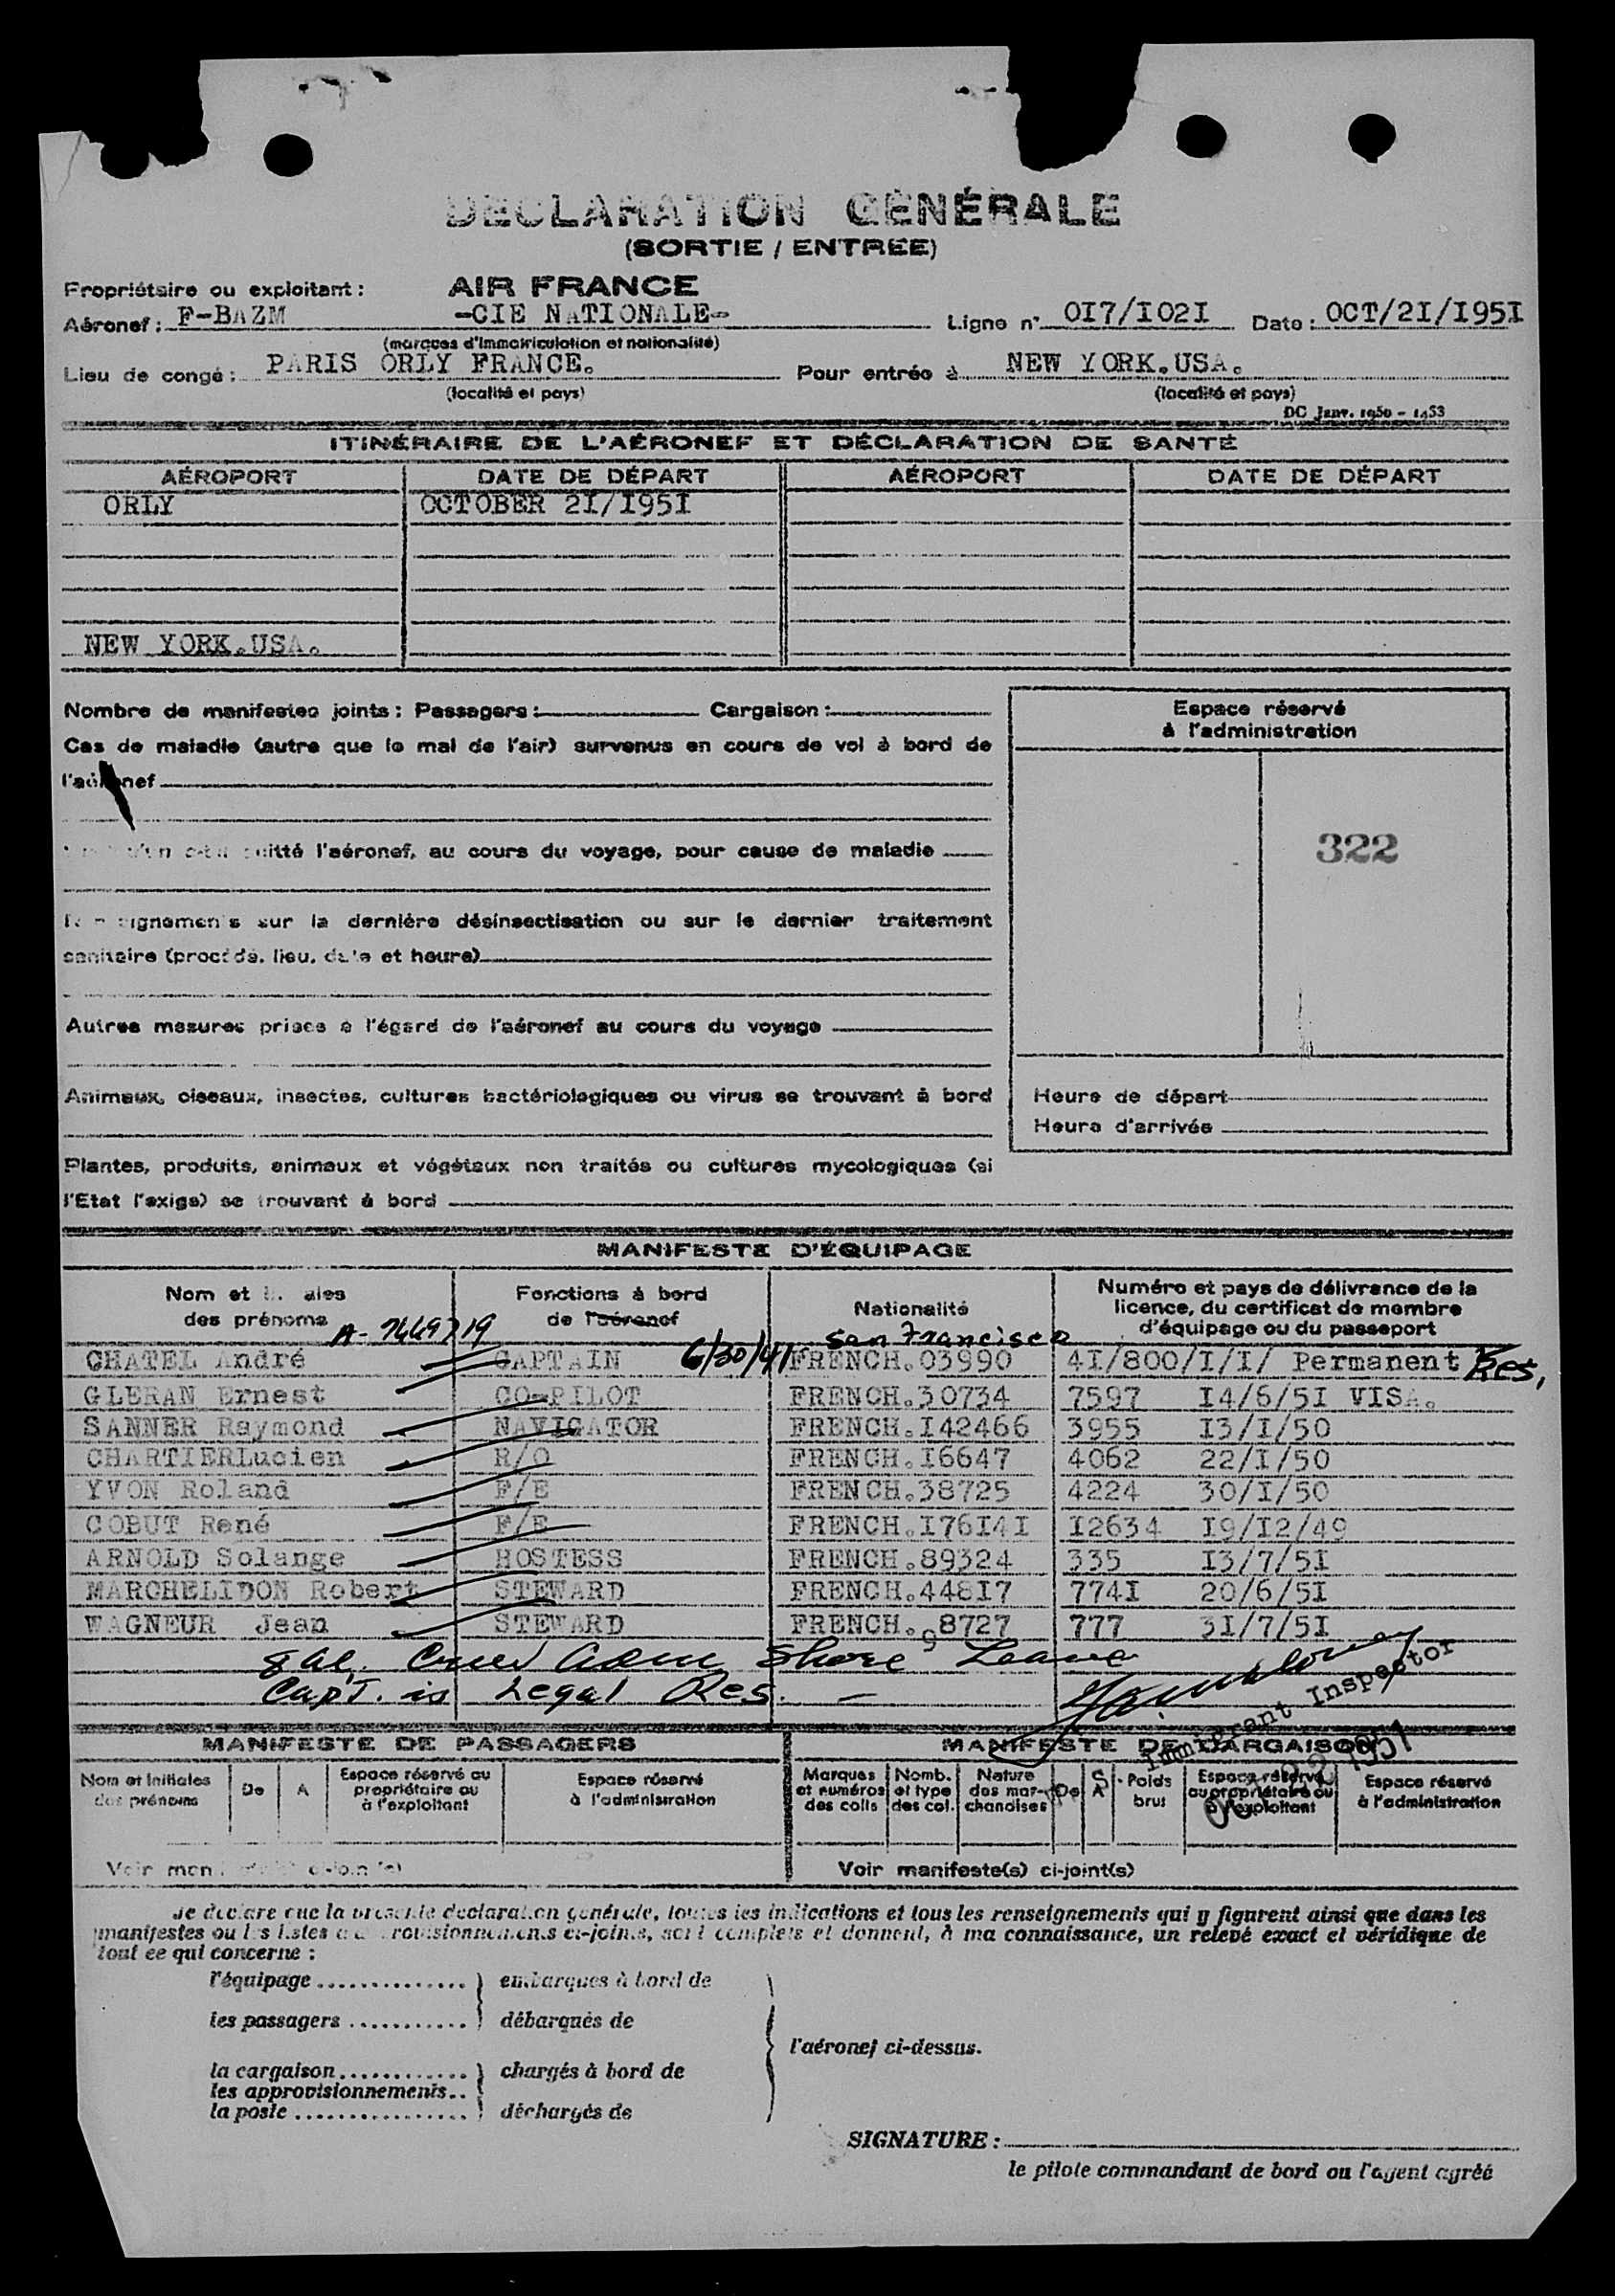 DECLARATION GÉNÉRALE
(SORTIE / ENTREE)
Propriétaire ou exploitant : AIR FRANCE
Aéronef : F-BAZM -CIE NATIONALE- Ligne n° OI7/IO2I Date : OCT/2I/I95I
(marques d'immatriculation et nationalité)
Lieu de congé : PARIS ORLY FRANCE. Pour entrée à NEW YORK.USA.
(localité et pays) (localité et pays)
DC Janv. 1950 - 1453
ITINÉRAIRE DE L'AÉRONEF ET DÉCLARATION DE SANTÉ
AÉROPORT DATE DE DÉPART AÉROPORT DATE DE DÉPART
ORLY OCTOBER 2I/I95I
NEW YORK.USA.
Nombre de manifestes joints : Passagers : Cargaison :
Espace réservé
à l'administration
Cas de maladie (autre que le mal de l'air) survenus en cours de vol à bord de
l'aéronef
322
quitté l'aéronef, au cours du voyage, pour cause de maladie
Renseignements sur la dernière désinsectisation ou sur le dernier traitement
sanitaire (procédé, lieu, date et heure)
Autres mesures prises à l'égard de l'aéronef au cours du voyage
Animaux, oiseaux, insectes, cultures bactériologiques ou virus se trouvant à bord
Heure de départ
Heure d'arrivée
Plantes, produits, animaux et végétaux non traités ou cultures mycologiques (si
l'Etat l'exige) se trouvant à bord
MANIFESTE D'ÉQUIPAGE
Nom et initiales des prénoms Fonctions à bord de l'aéronef Nationalité Numéro et pays de délivrance de la licence, du certificat de membre d'équipage ou du passeport
A- 7449719 6/30/41 San Francisco
CHATEL André CAPTAIN FRENCH.03990 4I/800/I/I/ Permanent Res,
GLERAN Ernest CO-PILOT FRENCH.30734 7597 I4/6/5I VISA.
SANNER Raymond NAVIGATOR FRENCH.I42466 3955 I3/I/50
CHARTIERLucien R/O FRENCH.I6647 4062 22/I/50
YVON Roland F/E FRENCH.38725 4224 30/I/50
COBUT René F/E FRENCH.I76I4I I2634 I9/I2/49
ARNOLD Solange HOSTESS FRENCH.89324 335 I3/7/5I
MARCHELIDON Robert STEWARD FRENCH.448I7 774I 20/6/5I
WAGNEUR Jean STEWARD FRENCH.98727 777 3I/7/5I
Crew Adm Shore Leave
Capt. is Legal Res. -
Immigrant Inspector
MANIFESTE DE PASSAGERS MANIFESTE DE CARGAISON
Nom et Initiales des prénoms De A Espace réservé au propriétaire ou à l'exploitant Espace réservé à l'administration Marques et numéros des colis Nomb. et type des col. Nature des marchandises De A Poids brut Espace réservé au propriétaire ou à l'exploitant Espace réservé à l'administration
Voir manifeste(s) ci-joint(s) Voir manifeste(s) ci-joint(s)
Je déclare que la présente déclaration générale, toutes les indications et tous les renseignements qui y figurent ainsi que dans les
manifestes ou les listes d'approvisionnements ci-joints, sont complets et donnent, à ma connaissance, un relevé exact et véridique de
tout ce qui concerne :
l'équipage .............. embarqués à bord de
les passagers ........... débarqués de
l'aéronef ci-dessus.
la cargaison............ chargés à bord de
les approvisionnements..
la poste ................ déchargés de
SIGNATURE :
le pilote commandant de bord ou l'agent agréé